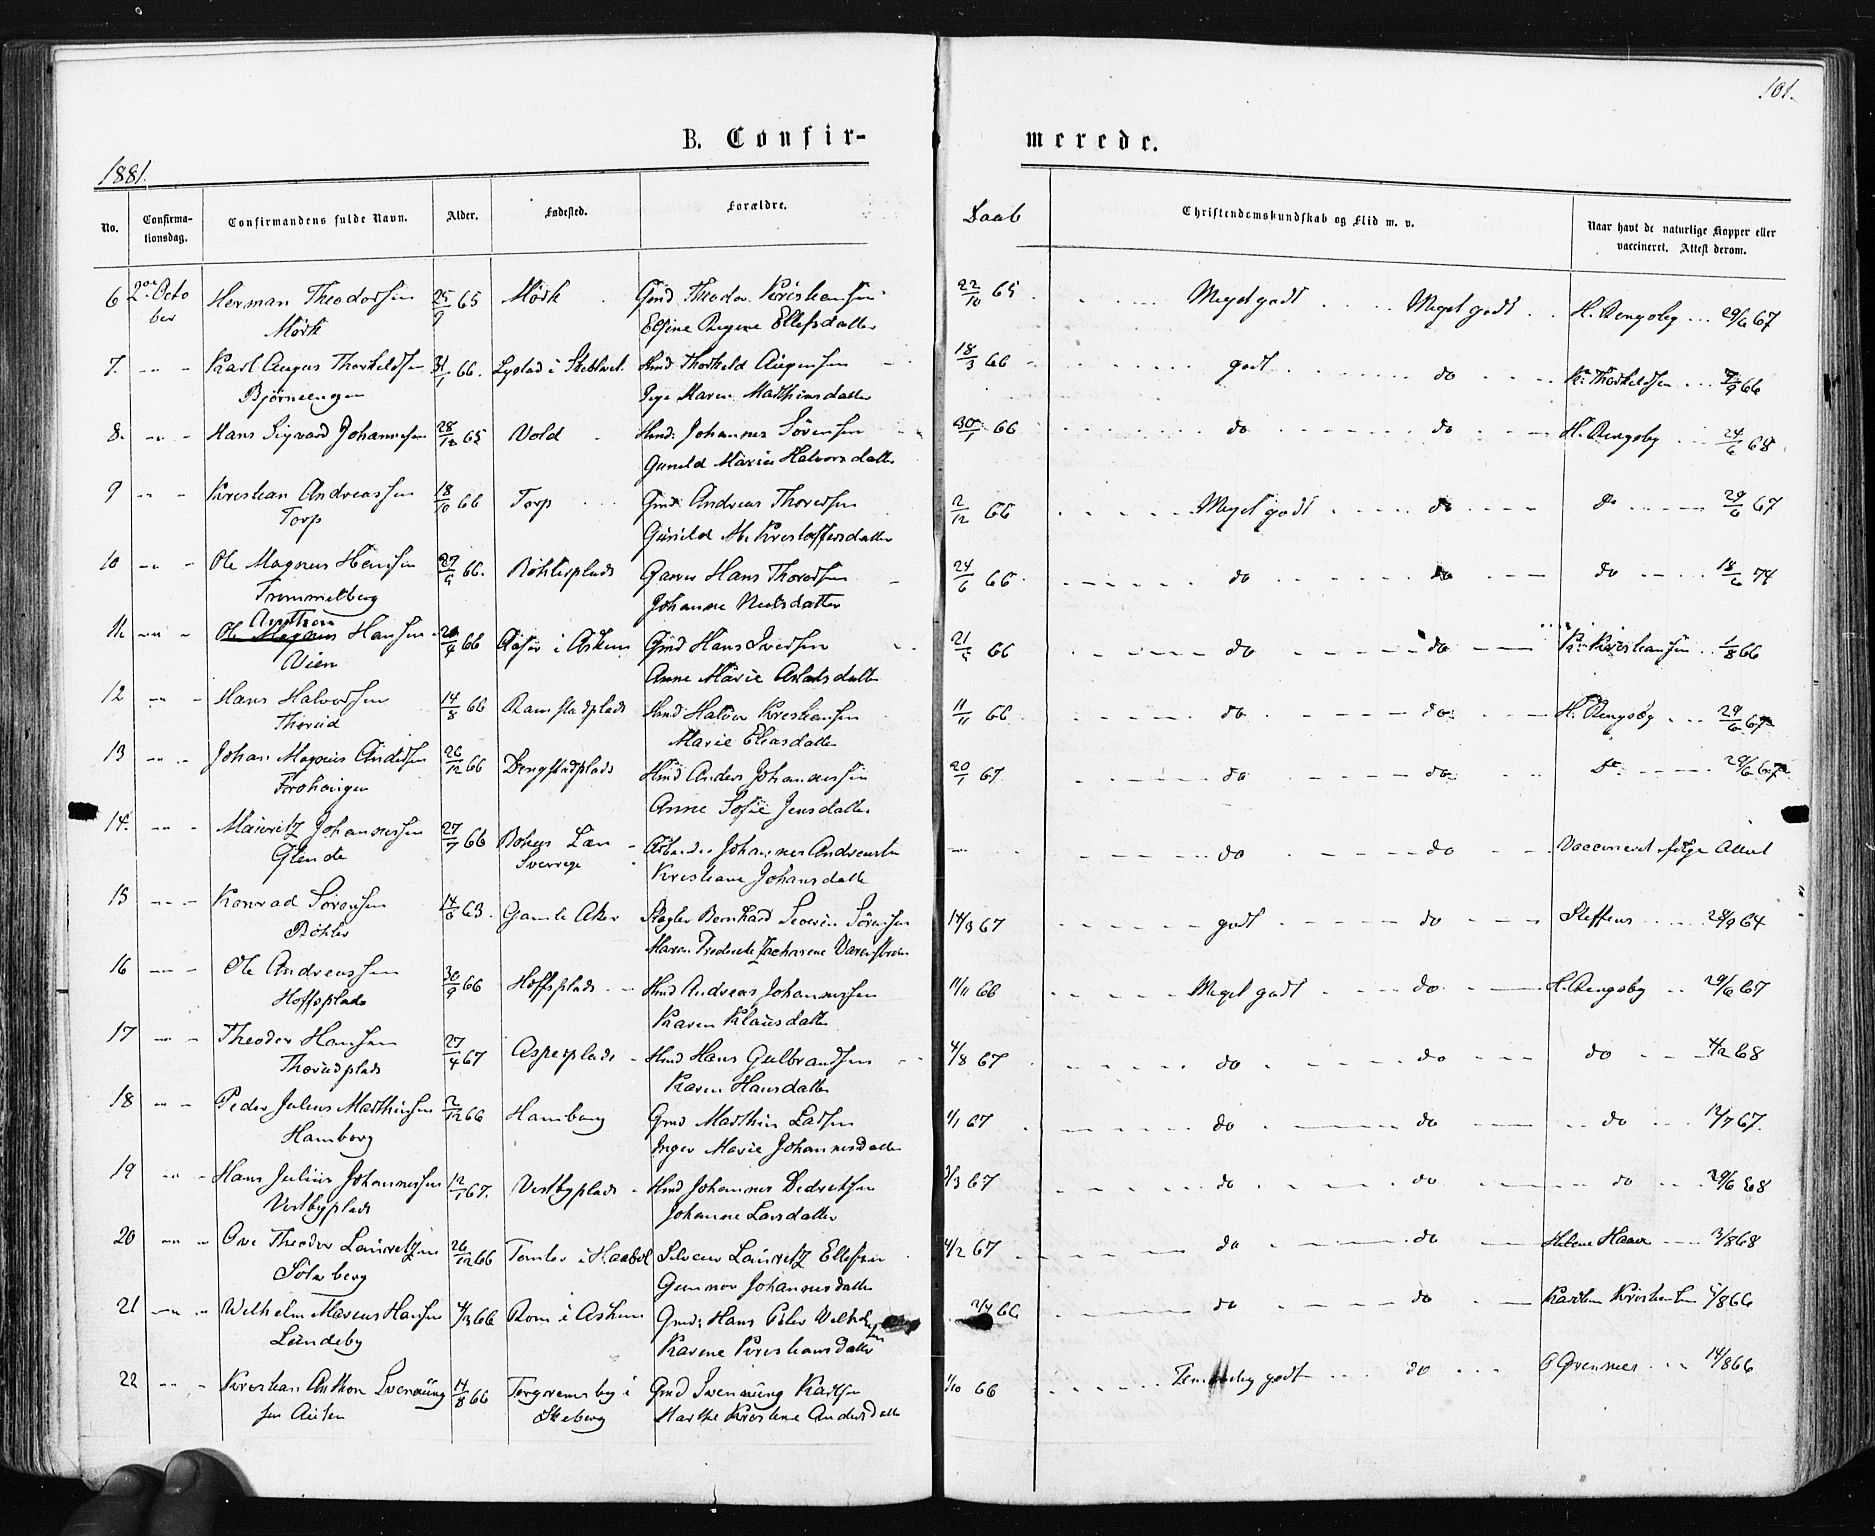 101.
B. Confir- merede.
1881.
No. Confirma-tionsdag. Confirmandens fulde Navn. Alder. Fødested. Forældre. Daab Christendomskundskab og Flid m. v. Naar havt de naturlige Kopper eller vaccineret. Attest derom.
6 2den Octo Herman Theodorsen 25/9 65 Mörk Gmd Theodor Kristiansen 22/10 65 Meget godt Meget godt H. Rengsby 29/6 67
ber Mörk Elsine Regine Ellefsdatter
7. Karl August Thorkildsen 31/1 66. i Skibtvet. Hmd Thorkild Augensen 18/3 66 godt do K. Thorkildsen 66
Björneengen Maren Mathiasdatter
8. Hans Sigvard Johannesen 28/12 65 Vold Hmd. Johannes Sörensen 30/1 66 do do H. Rengsby 24/6 68
Gunild Marie Halvorsdatter
9 Kristian Andreassen 18/10 66 Torp Gmd Andreas Thoresen 2/12 66 Meget godt do do 29/6 67
Torp Gunild Ma. Kristoffersdatter
10 Ole Magnus Hansen 66. Böhlerplads Garver Hans Thoresen 24/6 66 do do do 18/6 74
Trommelberg Johanne Nielsdatter
Anthon
11. Ole Magnus Hansen 66 i Askim Gmd Hans Iversen 66 do do K. Kristiansen 1/8 66
Vien Anne Marie Aslaksdatter
12 Hans Halvorsen 14/8 66 Ramstadplads Hmd Halvor Kristiansen 11/11 66 do do H. Rengsby 29/6 67
Thorud Marie Eliasdatter
13 Johan Magnus Andersen 26/12 66 Dengstadplads Hmd Anders Johannessen 20/1 67 do do Do 29/6 67
Frohaugen Anne Sofie Jensdatter
14. Mauritz Johannessen 27/7 66 Bohus Län Arbeider Johannes Andreassen do do Vaccineret ifølge Attest
Glende Sverrige Kristiane Johansdatter
15 Konrad Sörensen 14/6 63. Gamle Aker Slagter Bernhard Severin Sörensen 14/3 67 godt do Steffens 28/9 64
Böhler Maren Frederikke Zacharine Varenstrøm
16 Ole Andreassen 30/9 66 Hoffsplads Hmd Andreas Johannessen 11/11 66 Meget godt do H. Rengsby 29/6 67
Hoffsplads Karen Klausdatter
17 Theodor Hansen 27/4 67 Aspesplads Hmd Hans Gulbrandsen 4/8 67 do do do 4/2 68
Thorudplads Karen Hansdatter
18 Peder Julius Marthinsen 2/12 66 Hamborg Gmd Marthin Larsen 1/1 67 do do do 12/7 67.
Hamborg Inger Marie Johannesdatter
19 Hans Julius Johannessen 12/1 67. Vestbyplads Hmd Johannes Dedriksen 3/3 67 do do do 29/6 68
Vestbyplads Johanne Larsdatter
20 Ove Theodor Lauritzen 26/12 66 Tomter i Haabøl Selveier Lauritz Ellefsen 4/2 67 do do Helene Haave 3/8 68
Sölvberg Gunnor Johannesdatter
21 Wilhelm Marcus Hansen 4/3 66 Rom i Askim Gmd: Hans Peter 2/4 66 do do Karen Kristiansen 1/8 66
Lundeby Karine Kristiansdatter
22 Kristian Anthon Svenning 14/8 66 Torgrimsby i Gmd Svenning Karlsen 1/10 66 Temmelig godt do O Grennes 14/8 66
sen Auten Skiberg Marthe Kristine Andersdatter